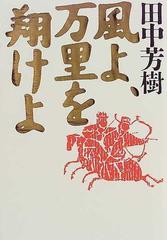 田中芳樹
風よ、
万里を
翔けよ